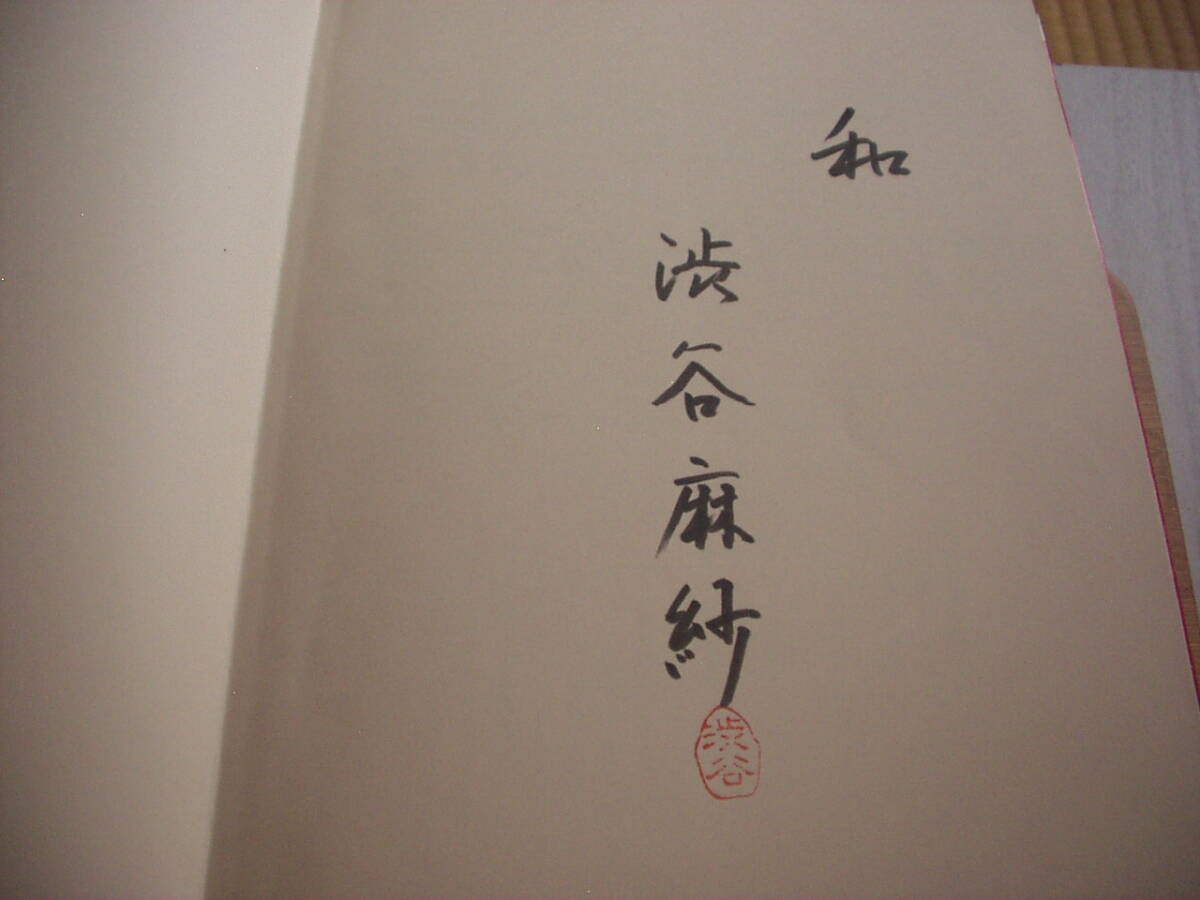 和
渋谷麻紗
渋谷